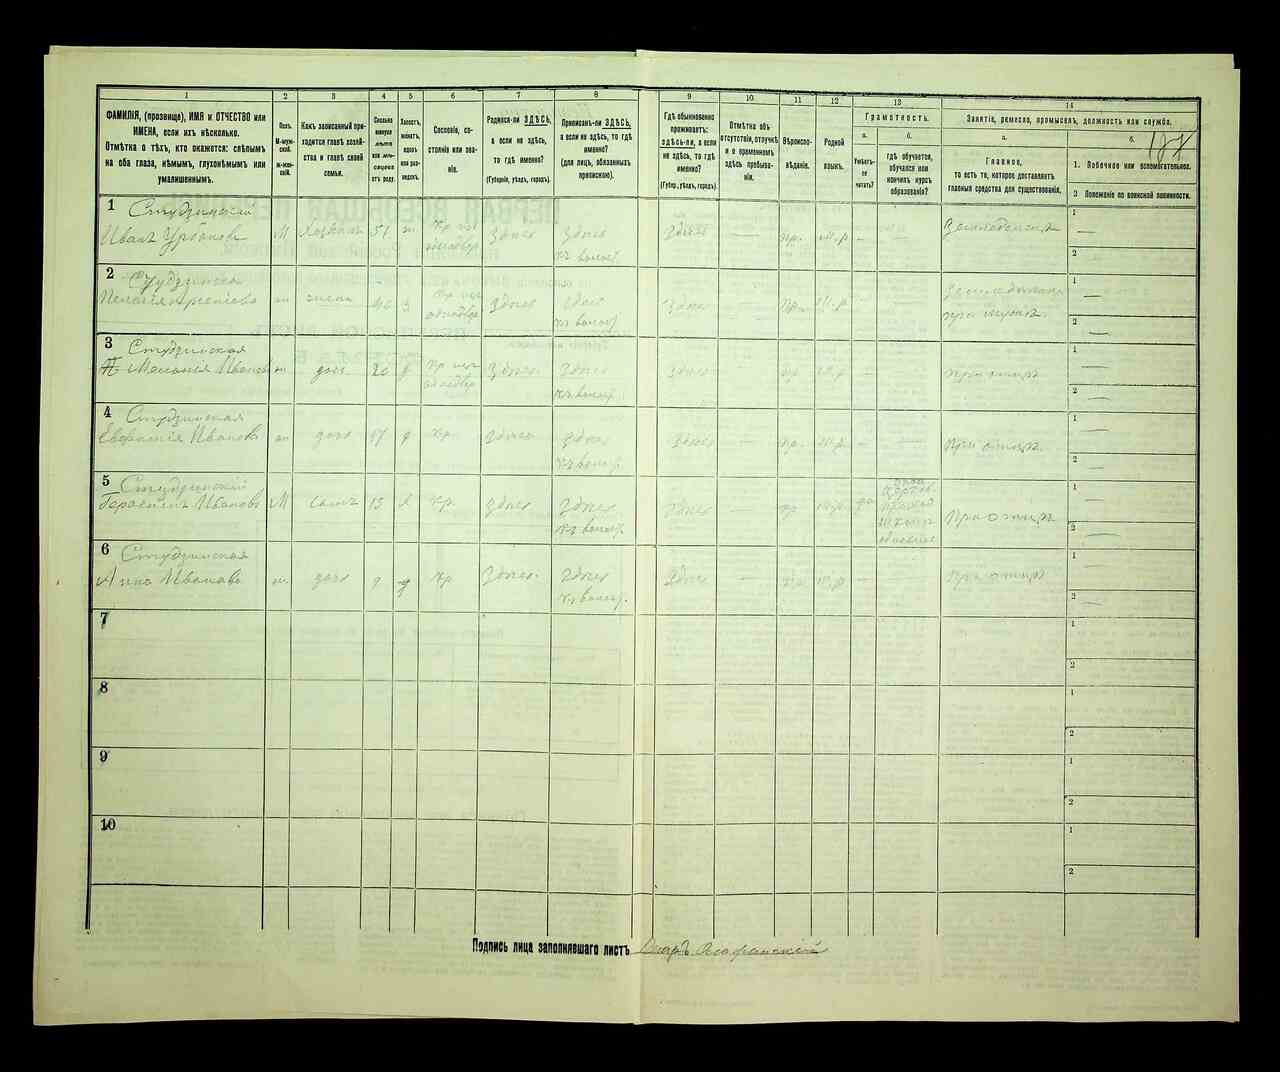 1
2
3
4
5
6
7
8
9
10
11
12
13
14
ФАМИЛІЯ, (прозвище), ИМЯ и ОТЧЕСТВО или
ИМЕНА, если ихъ нѣсколько.
Отмѣтка о тѣхъ, кто окажется: слѣпымъ
на оба глаза, нѣмымъ, глухонѣмымъ или
умалишеннымъ.
Полъ.
М-муж-
ской.
ж-жен-
скій.
Какъ записанный при-
ходится главѣ хозяй-
ства и главѣ своей
семьи.
Сколько
минуло
лѣтъ
или мѣ-
сяцевъ
отъ роду.
Холостъ,
женатъ,
вдовъ
или раз-
веденъ.
Сословіе, со-
стояніе или зва-
ніе.
Родился-ли ЗДѢСЬ,
а если не здѣсь,
то гдѣ именно?
(Губернія, уѣздъ, городъ).
Приписанъ-ли ЗДѢСЬ,
а если не здѣсь, то гдѣ
именно?
(для лицъ, обязанныхъ
припискою).
Гдѣ обыкновенно
проживаетъ:
здѣсь-ли, а если
не здѣсь, то гдѣ
именно?
(Губерн., уѣздъ, городъ).
Отмѣтка объ
отсутствіи, отлучкѣ
и о временномъ
здѣсь пребыва-
ніи.
Вѣроиспо-
вѣданіе.
Родной
языкъ.
Грамотность.
а.
Умѣетъ-
ли
читать?
б.
гдѣ обучается,
обучался или
кончилъ курсъ
образованія?
Занятіе, ремесло, промыселъ, должность или служба.
а.
Главное,
то есть то, которое доставляетъ
главныя средства для существованія.
б.
1. Побочное или вспомогательное.
2 Положеніе по воинской повинности.
1
Студзинскій
Иванъ Урбановъ
М
Хозяинъ
51
ж
Здѣсь
Здѣсь
къ волост.
Здѣсь
—
пр.
м.р
—
—
Земледѣлецъ
1
—
2
2
Студзинска
ж
жена
3
Здѣсь
Здѣсь
къ волост.
Здѣсь
—
пр.
м.р
1
—
2
—
3
Студзинская
Меланія Иванов
ж
дочь
20
д
Здѣсь
Здѣсь
къ волост.
Здѣсь
—
пр
м.р.
При отцѣ
1
—
2
—
4
Студзинская
Евфросія Иванов
ж
дочь
17
д
кр.
Здѣсь
Здѣсь
къ волост.
Здѣсь
—
пр.
м.р.
При отцѣ
1
—
2
—
5
Студзинскій
Герасимъ Ивановъ
М
сынъ
13
х
кр.
Здѣсь
Здѣсь
къ волост.
Здѣсь
—
пр
м.р.
да
При отцѣ
1
—
2
—
6
Студзинская
Анна Иванова
ж.
дочь
9
д
кр
Здѣсь.
Здѣсь
къ волост.
Здѣсь
—
пр
м.р
—
При отцѣ
1
—
2
—
7
1
2
8
1
2
9
1
2
10
1
2
Подпись лица заполнявшаго листъ